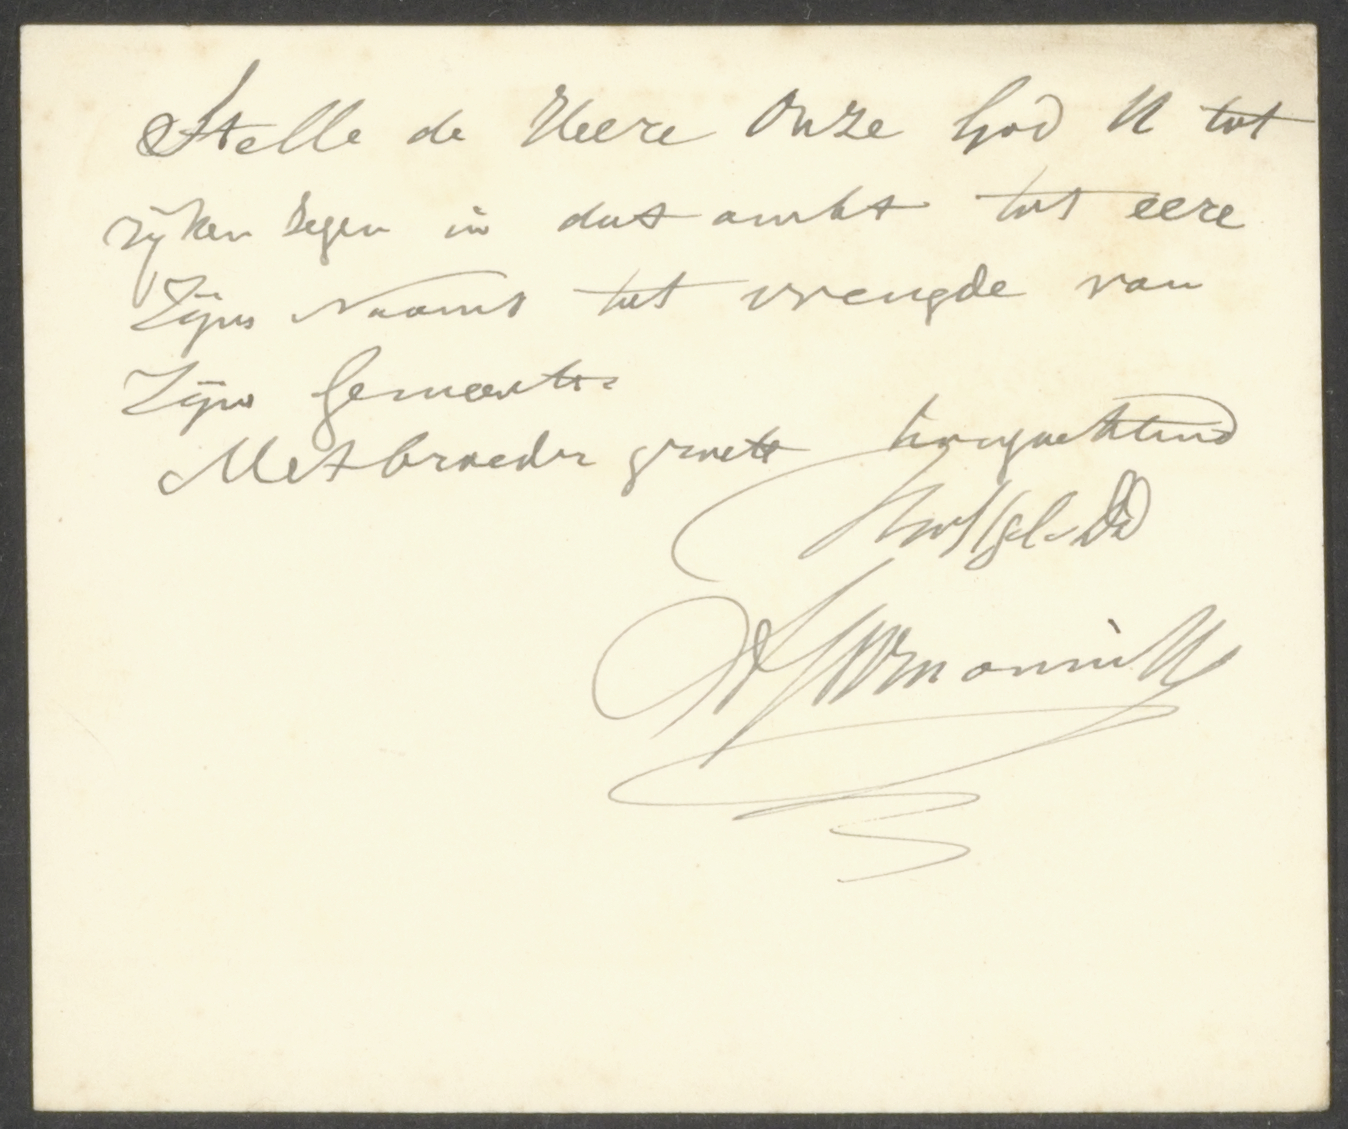 Stelle de Heere Onze God U tot
rijken zegen in dat ambt tot eere
Zijns Naams tot vreugde van
Zijne Gemeente
Met broedergroete hoogachtend